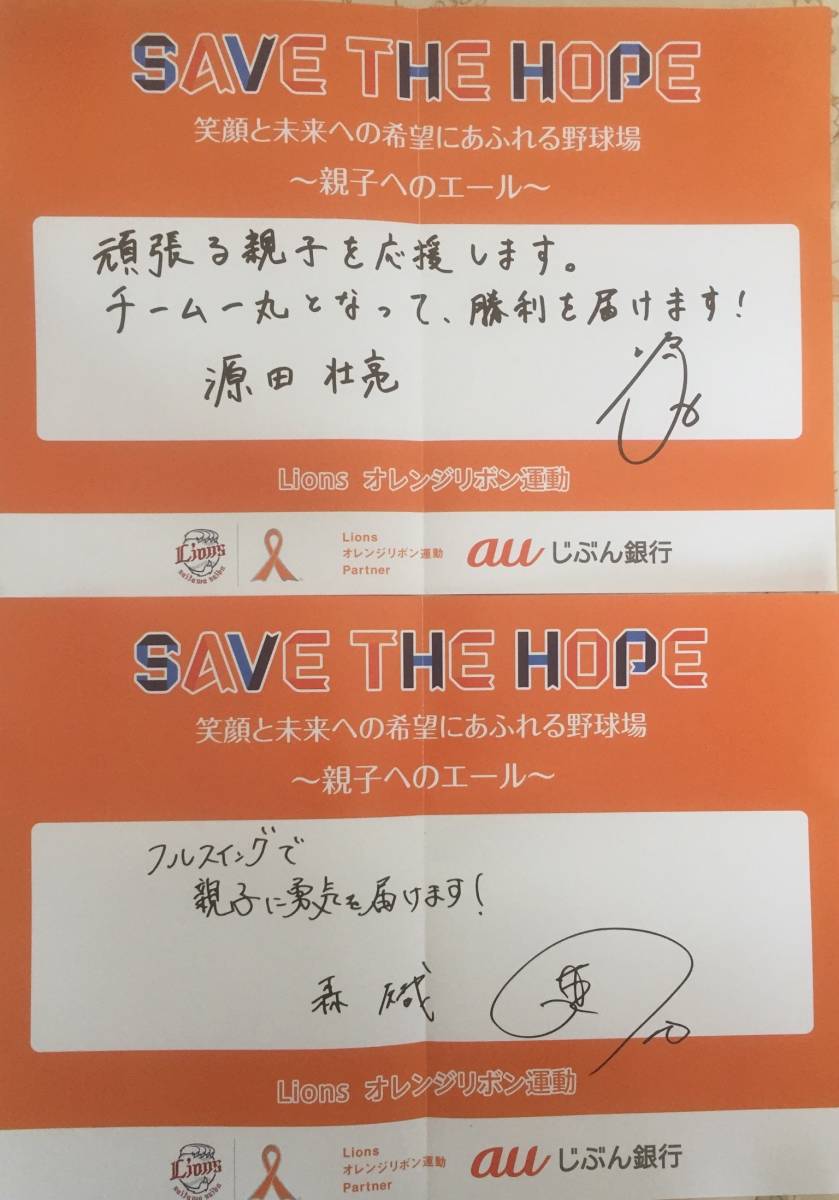 SAVE THE HOPE
笑顔と未来への希望にあふれる野球場
～親子へのエール～
頑張る親子を応援します。
チーム一丸となって、勝利を届けます！
源田 壮亮
Lions オレンジリボン運動
Lions
Lions
オレンジリボン運動
Partner
au じぶん銀行
SAVE THE HOPE
笑顔と未来への希望にあふれる野球場
～親子へのエール～
フルスイングで
親子に勇気を届けます！
森
Lions オレンジリボン運動
Lions
Lions
オレンジリボン運動
Partner
au じぶん銀行